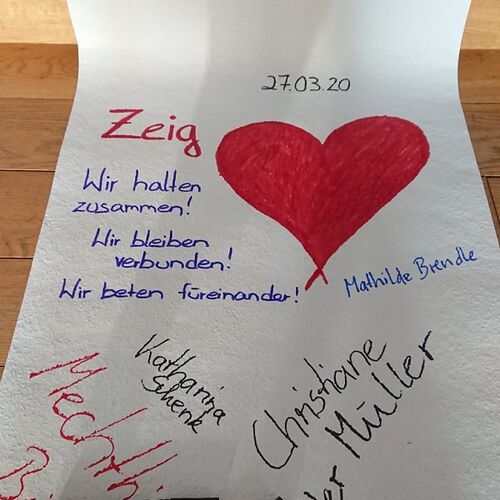 27.03.20
Zeig
Wir halten
zusammen!
Wir bleiben
verbunden!
Wir beten füreinander!
Mathilde Brendle
Katharina
Schenk
Christiane
Müller